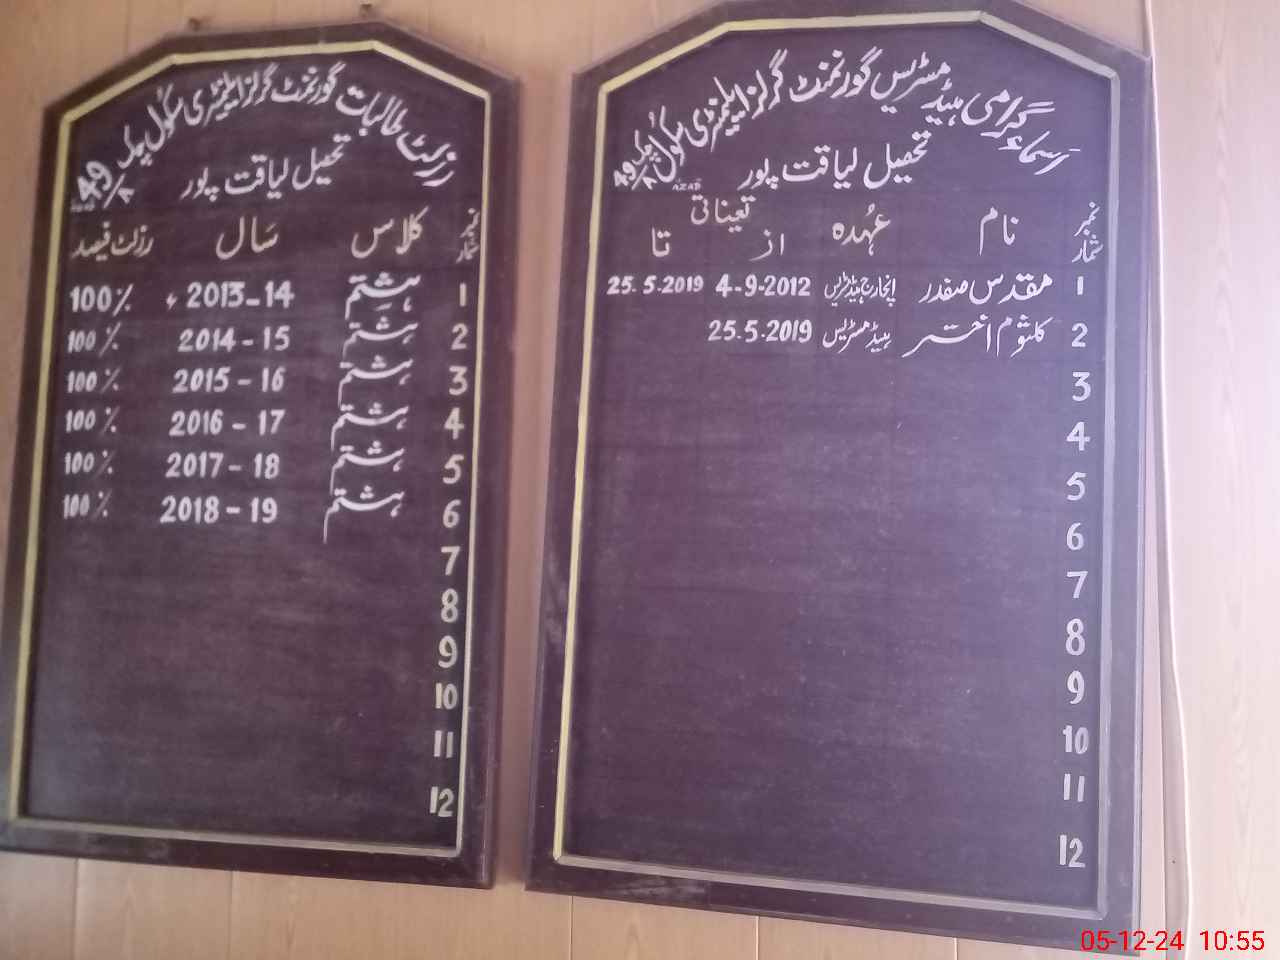 رزلٹ طالبات گورنمنٹ گرلز ایلیمنٹری سکول چک 49/A
تحصیل لیاقت پور
نمبر شمار کلاس سال رزلٹ فیصد
1 ہشتم 2013-14 100%
2 ہشتم 2014-15 100%
3 ہشتم 2015-16 100%
4 ہشتم 2016-17 100%
5 ہشتم 2017-18 100%
6 ہشتم 2018-19 100%
7
8
9
10
11
12
اسماء گرامی ہیڈ مسٹریس گورنمنٹ گرلز ایلیمنٹری سکول چک 49/A
تحصیل لیاقت پور
AZAD
نمبر شمار نام عُہدہ تعیناتی
از تا
1 مقدس صفدر انچارج ہیڈ مسٹریس 4-9-2012 25.5.2019
2 کلثوم اختر ہیڈ مسٹریس 25.5.2019
3
4
5
6
7
8
9
10
11
12
05-12-24 10:55